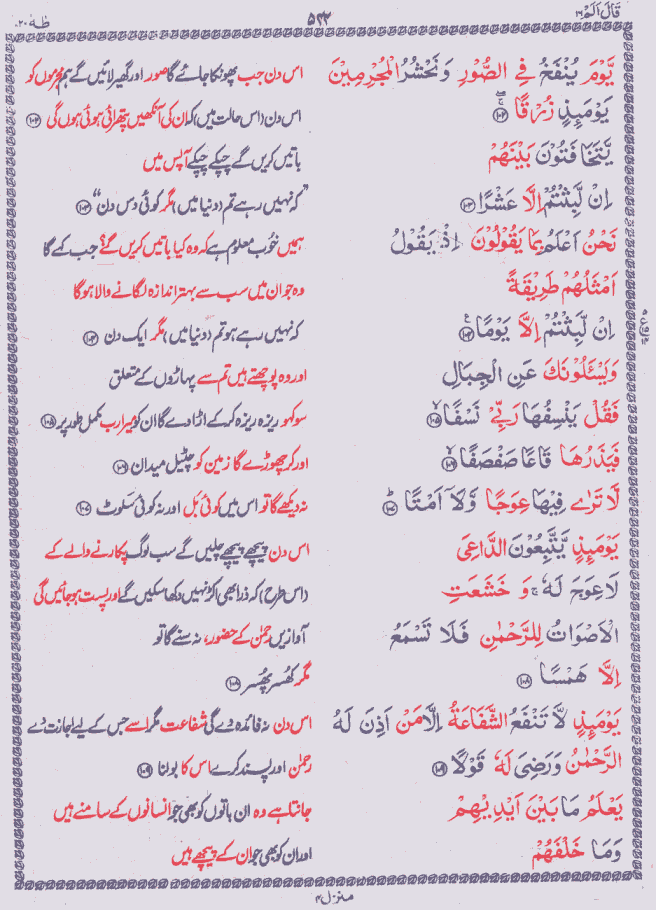 قَالَ اَلَمْ ١٦
٥٢٢
طٰهٰ ٢٠
يَّوْمَ يُنْفَخُ فِي الصُّوْرِ وَنَحْشُرُ الْمُجْرِمِيْنَ
اس دن جب پھونکا جائے گا صور اور گھیر لائیں گے ہم مجرموں کو
يَوْمَئِذٍ زُرْقًا ﴿١٠٢﴾
اس دن (اس حالت میں) کہ ان کی آنکھیں پتھرائی ہوئی ہوں گی ﴿١٠٢﴾
يَّتَخَافَتُوْنَ بَيْنَهُمْ
باتیں کریں گے چپکے چپکے آپس میں
اِنْ لَّبِثْتُمْ اِلَّا عَشْرًا ﴿١٠٣﴾
"کہ نہیں رہے تم (دنیا میں) مگر کوئی دس دن" ﴿١٠٣﴾
نَحْنُ اَعْلَمُ بِمَا يَقُوْلُوْنَ اِذْ يَقُوْلُ
ہمیں خوب معلوم ہے کہ وہ کیا باتیں کریں گے؟ جب کہے گا
اَمْثَلُهُمْ طَرِيْقَةً
وہ جو ان میں سب سے بہتر اندازہ لگانے والا ہوگا
اِنْ لَّبِثْتُمْ اِلَّا يَوْمًا ﴿١٠٤﴾
کہ نہیں رہے ہو تم (دنیا میں) مگر ایک دن ﴿١٠٤﴾
وَيَسْـَٔلُوْنَكَ عَنِ الْجِبَالِ
اور وہ پوچھتے ہیں تم سے پہاڑوں کے متعلق
فَقُلْ يَنْسِفُهَا رَبِّيْ نَسْفًا ﴿١٠٥﴾
سو کہو ریزہ ریزہ کرکے اڑا دے گا ان کو میرا رب مکمل طور پر ﴿١٠٥﴾
فَيَذَرُهَا قَاعًا صَفْصَفًا ﴿١٠٦﴾
اور کر چھوڑے گا زمین کو چٹیل میدان ﴿١٠٦﴾
لَّا تَرٰى فِيْهَا عِوَجًا وَّلَآ اَمْتًا ﴿١٠٧﴾
نہ دیکھے گا تو اس میں کوئی بل اور نہ کوئی سلوٹ ﴿١٠٧﴾
يَوْمَئِذٍ يَّتَّبِعُوْنَ الدَّاعِيَ
اس دن پیچھے پیچھے چلیں گے سب لوگ پکارنے والے کے
لَا عِوَجَ لَهٗ ۚ وَخَشَعَتِ
(اس طرح) کہ ذرا بھی اکڑ نہیں دکھا سکیں گے اور پست ہو جائیں گی
الْاَصْوَاتُ لِلرَّحْمٰنِ فَلَا تَسْمَعُ
آوازیں رحمٰن کے حضور، نہ سنے گا تو
اِلَّا هَمْسًا ﴿١٠٨﴾
مگر کھسر پھسر ﴿١٠٨﴾
يَوْمَئِذٍ لَّا تَنْفَعُ الشَّفَاعَةُ اِلَّا مَنْ اَذِنَ لَهُ
اس دن نہ فائدہ دے گی شفاعت مگر اسے جس کے لیے اجازت دے
الرَّحْمٰنُ وَرَضِيَ لَهٗ قَوْلًا ﴿١٠٩﴾
رحمٰن اور پسند کرے اس کا بولنا ﴿١٠٩﴾
يَعْلَمُ مَا بَيْنَ اَيْدِيْهِمْ
جانتا ہے وہ ان باتوں کو بھی جو انسانوں کے سامنے ہیں
وَمَا خَلْفَهُمْ
اور ان کو بھی جو ان کے پیچھے ہیں
منزل ٤